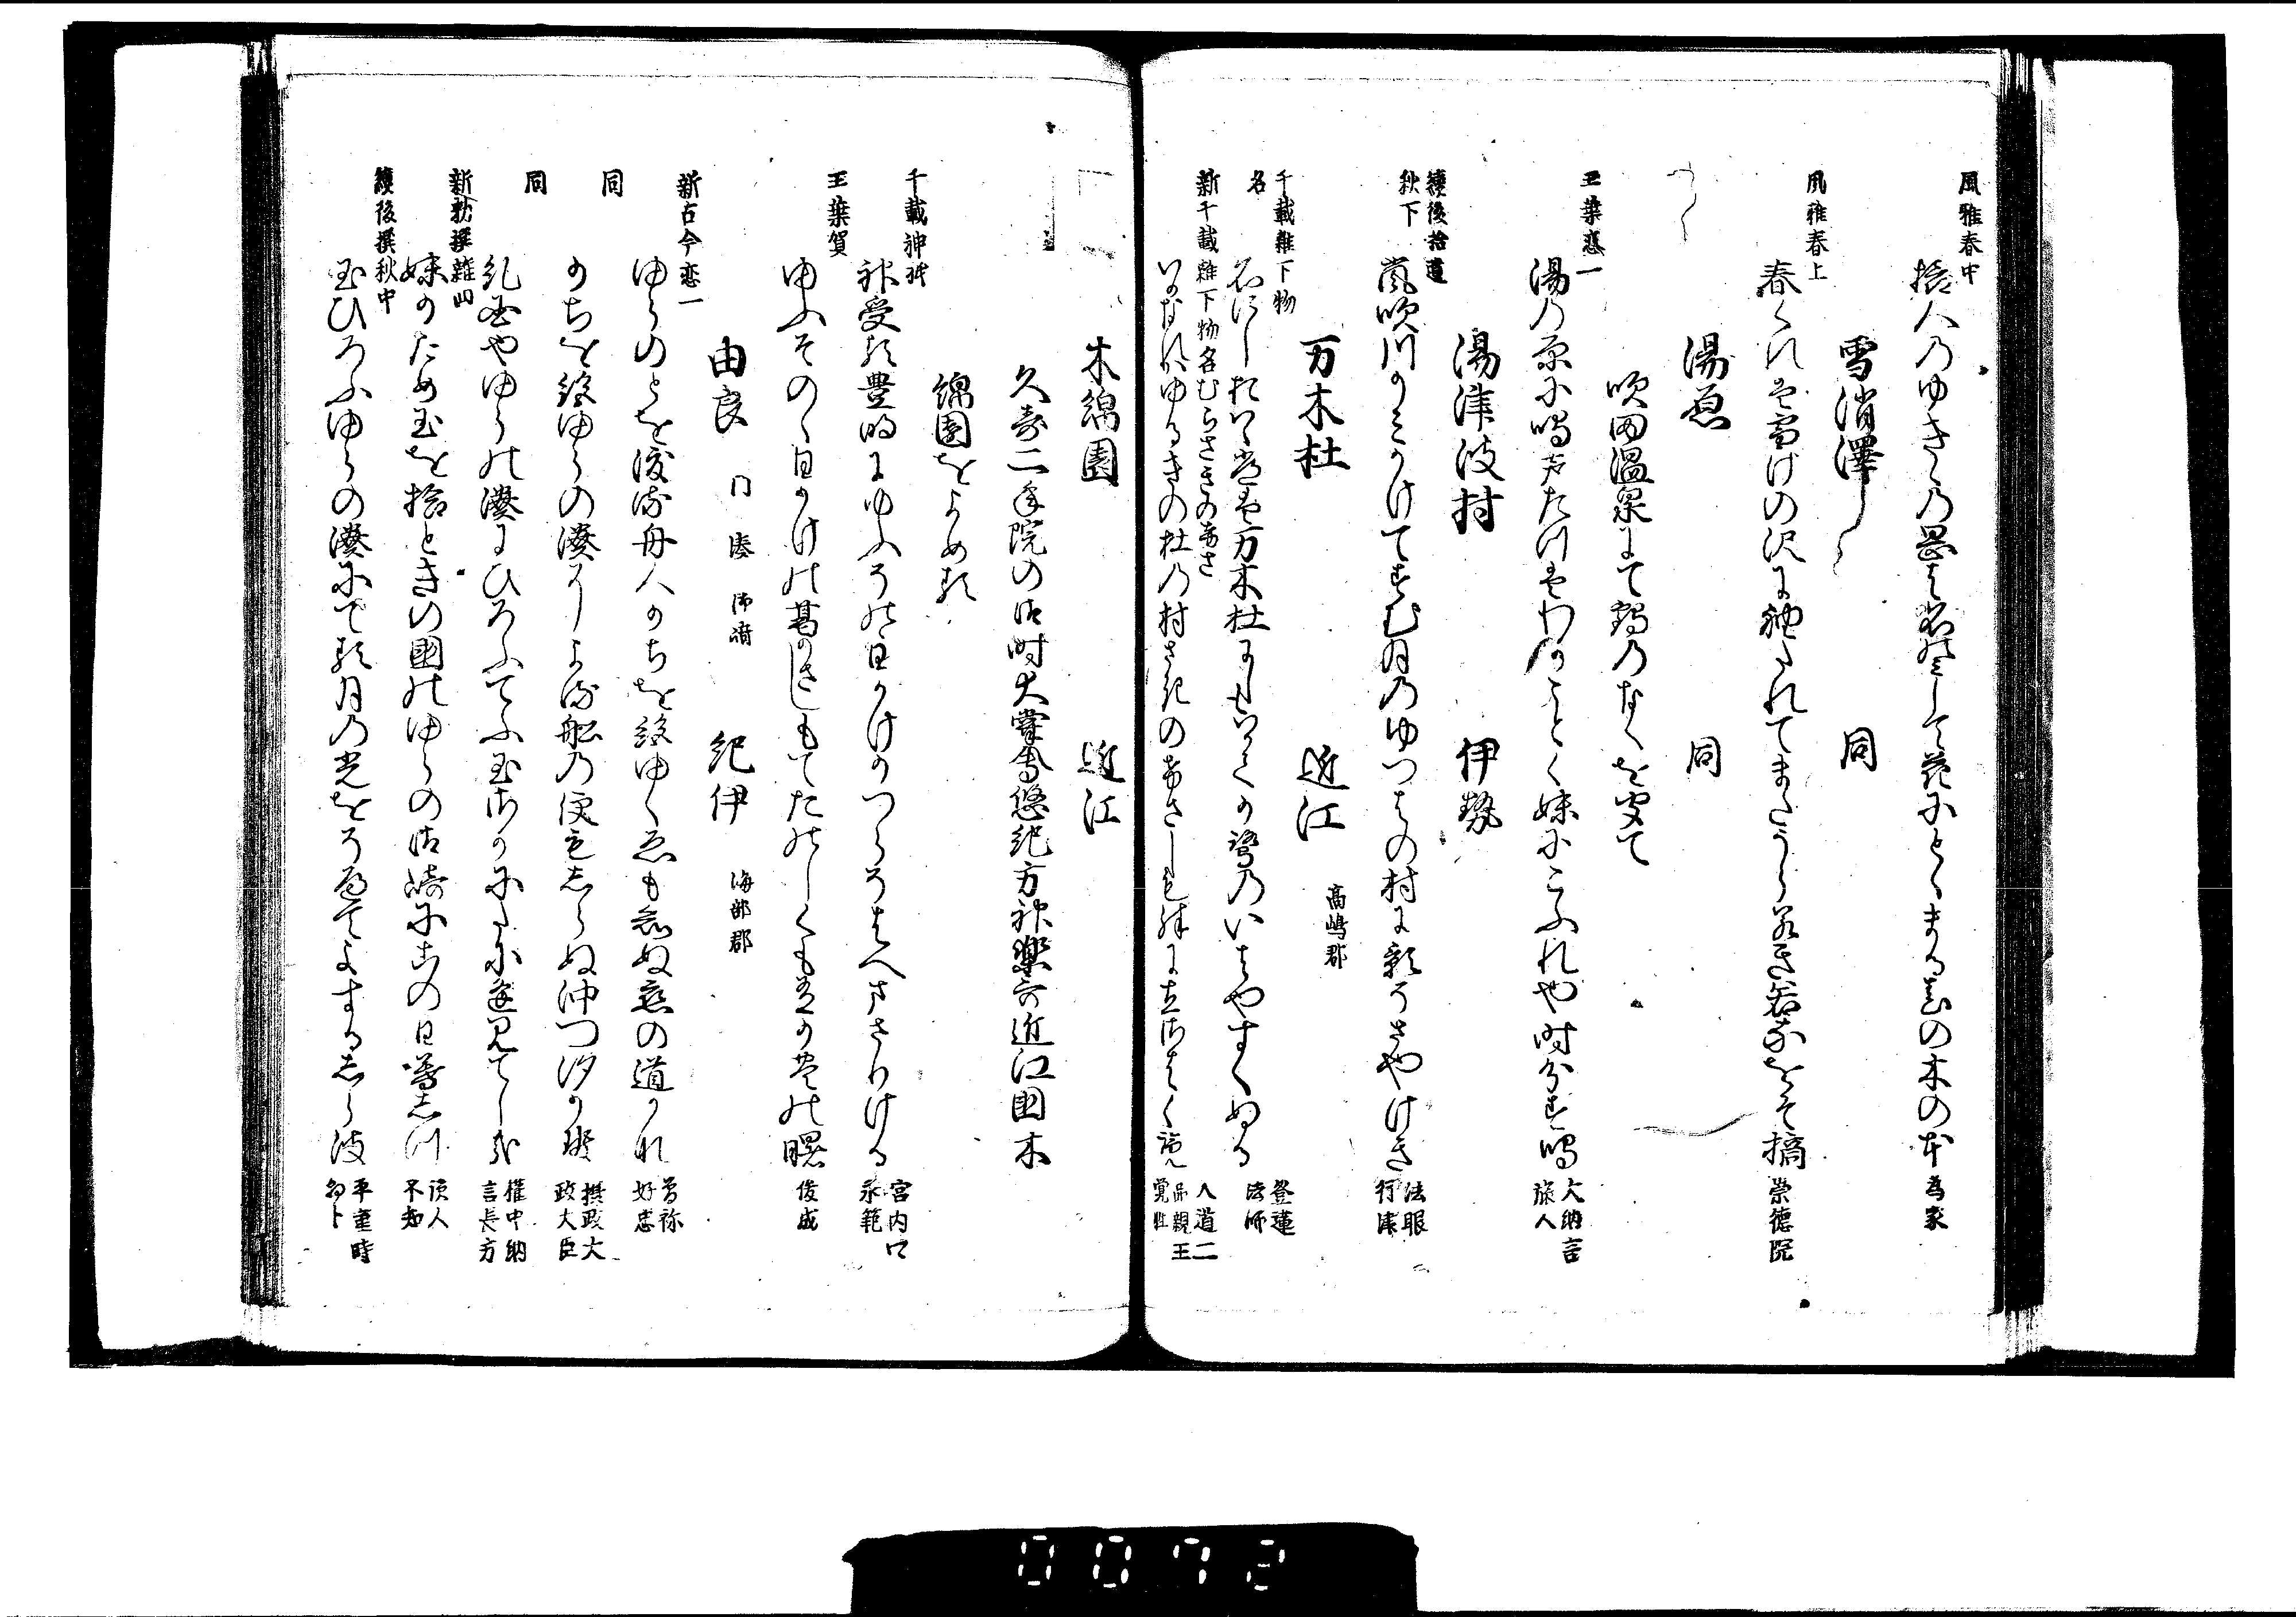 風雅春中
捨人のゆきゝの岡は名のみして花にとゝまる春の木の本 為家
雪消澤 同
風雅春上
春くれは雪けの沢に袖たれてまたうら若き若なをそ摘 崇徳院
湯原 同
吹田温泉にて鶴のなくを聞て
玉葉恋一
湯の原に鳴芦たつはわかことく妹にこふれや時分す鳴 大納言旅人
湯津波村 伊勢
續後拾遺秋下
嵐吹川
月のゆつはの村に影そさやけき 法眼行済
万木杜 近江 高嶋郡
千載雜下物名
名にしおはゝ
万木杜
鷺のいはやすくぬる 登蓮法師
新千載雜下物名むらさきのきさ
ゆるきの杜の村さきの
入道二品親王覚性
木綿園 近江
久寿二年院の御時大嘗會悠紀方神樂哥近江国木
綿園をよめる
千載神祇
神受る豊明にゆふその日かけのかつらそはへまさりける 宮内卿永範
玉葉賀
ゆふそのゝ日かけの葛かさしもてたのしくもあるか
の曙 俊成
由良 門 湊 御崎 紀伊 海部郡
新古今恋一
ゆらのとを渡る舟人かちを絶ゆくゑも知ぬ恋の道かな 曽祢好忠
同
かちを絶ゆらの湊による舩の便もしらぬ沖つ汐かせ 摂政大政大臣
同
紀国やゆらの湊にひろふてふ玉さかにたに逢見てし哉 権中納言長方
新勅撰雜四
妹かため玉を拾ときの国のゆらの御崎にこの日暮しつ 読人不知
續後撰秋中
玉ひろふゆらの湊にてる月の光をそへてよするしら波 平重時
0072